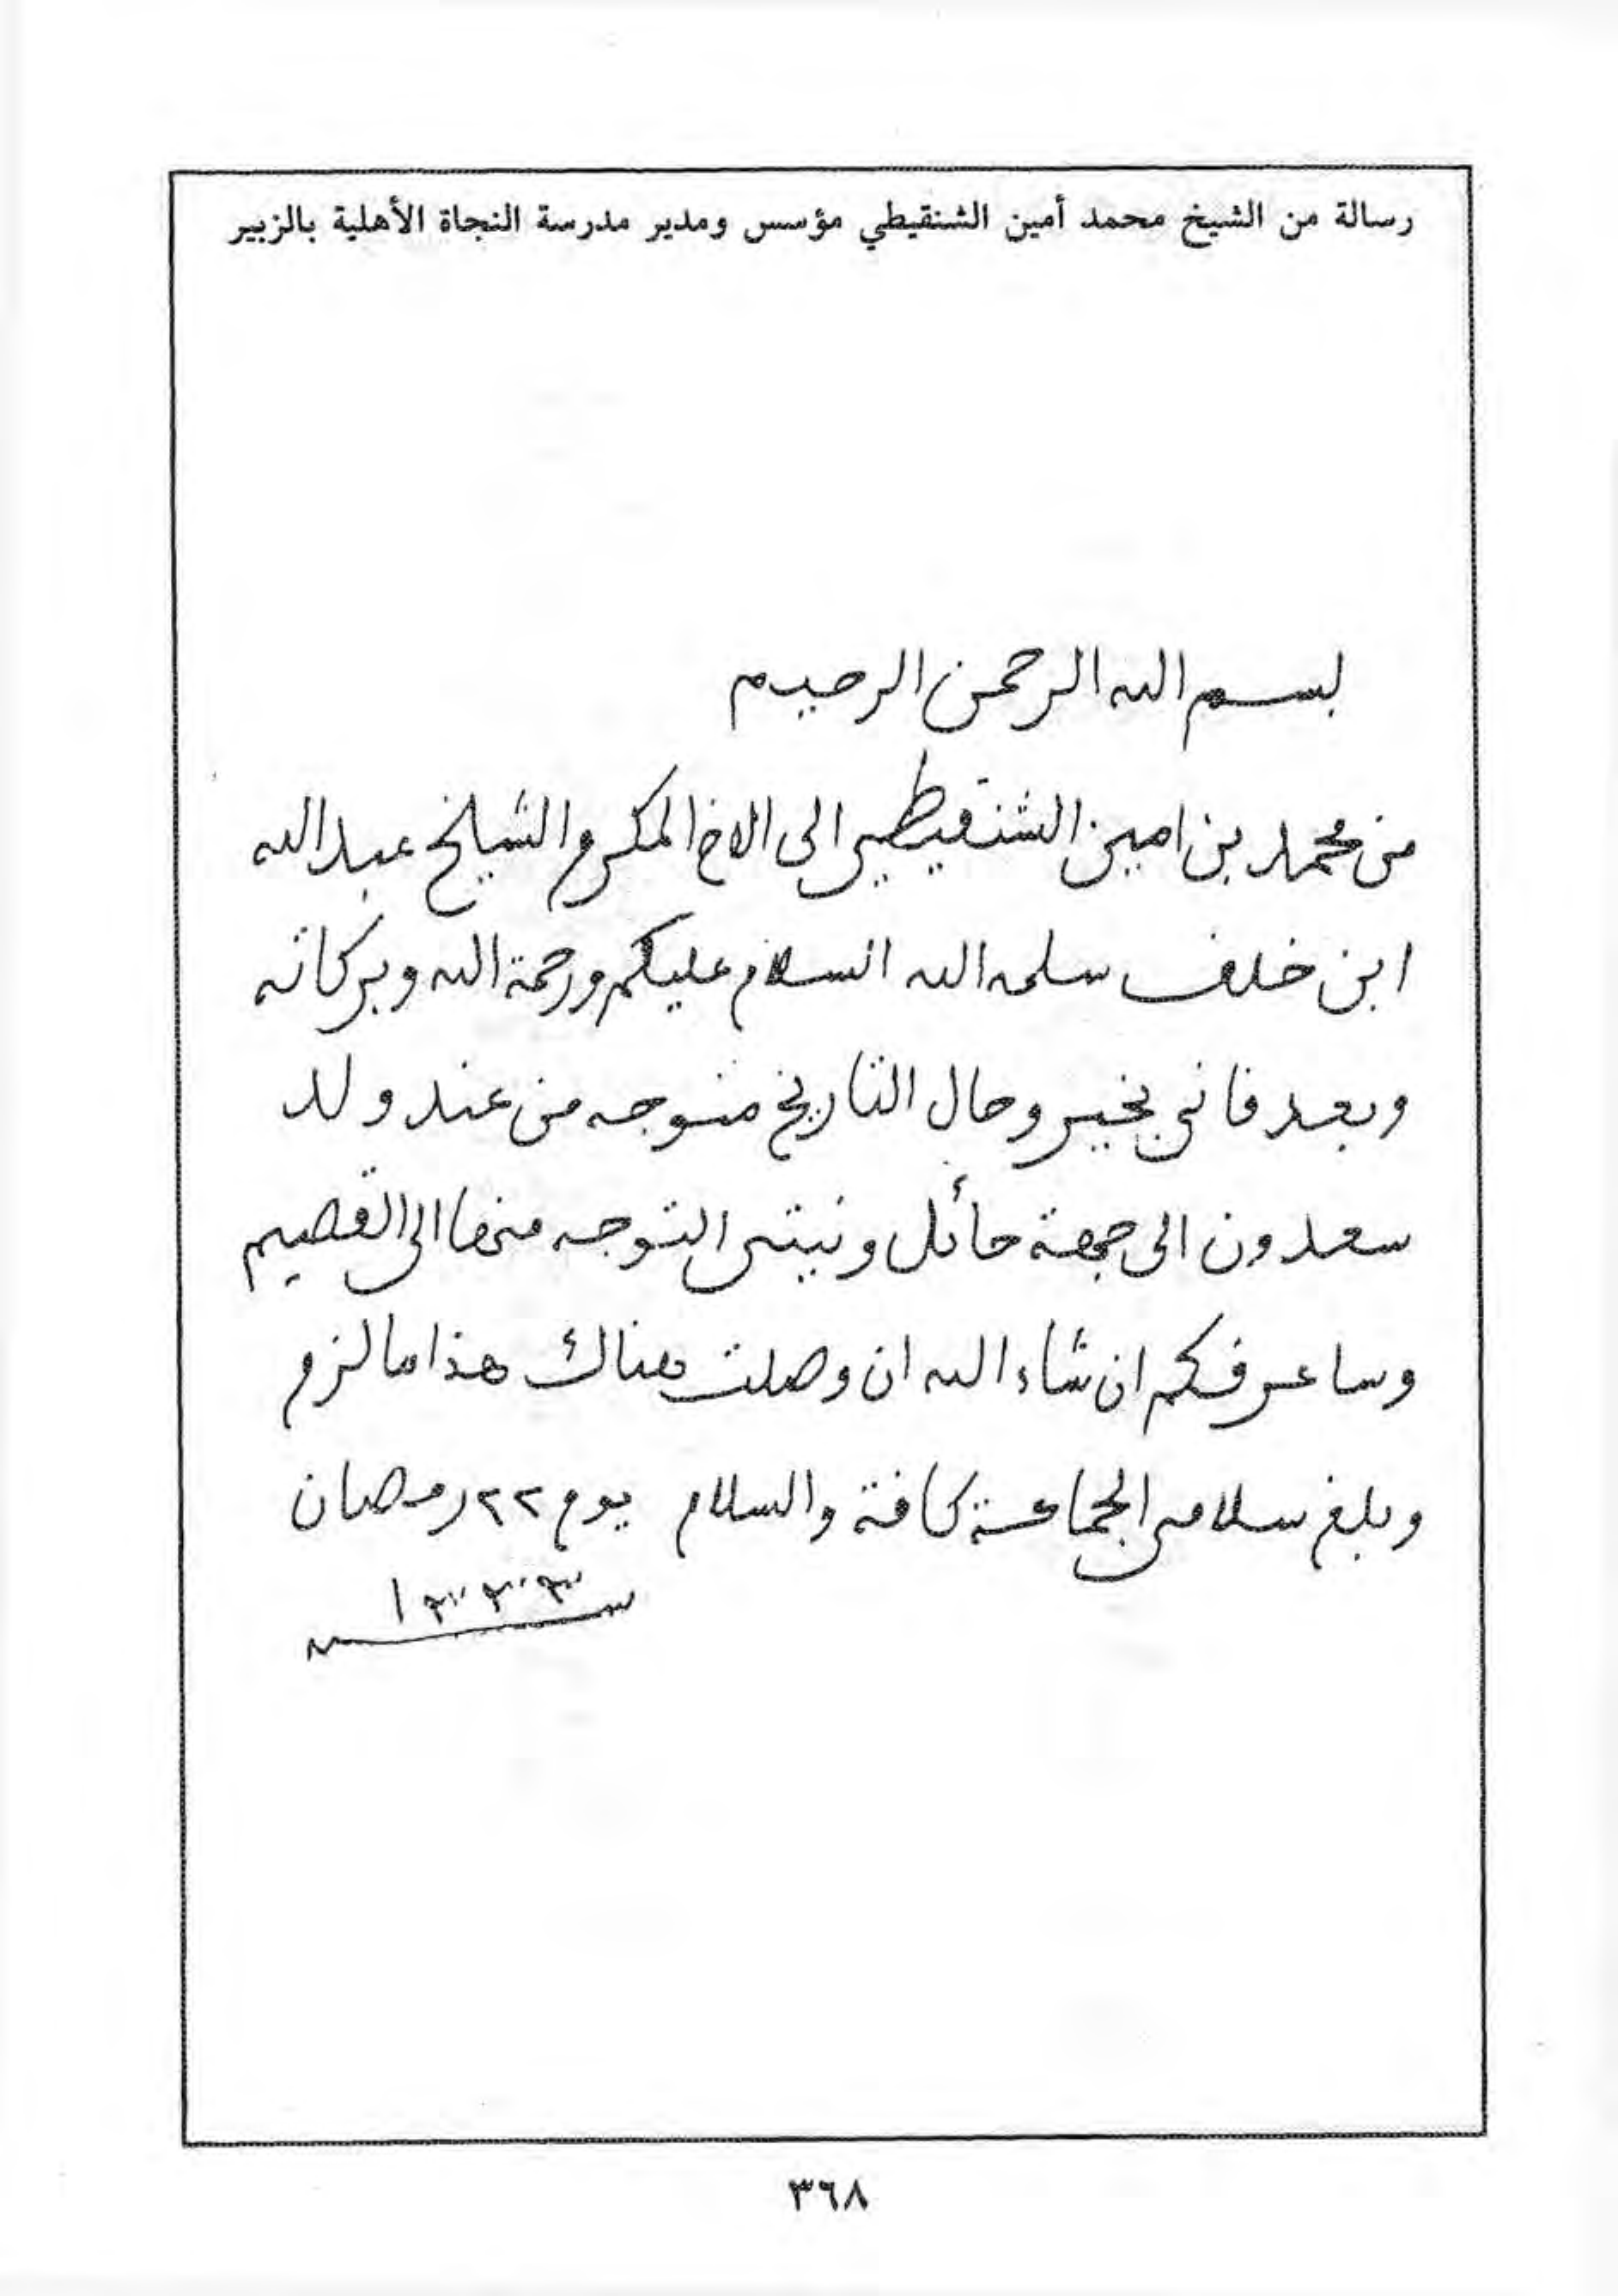 رسالة من الشيخ محمد أمين الشنقيطي مؤسس ومدير مدرسة النجاة الأهلية بالزبير
بسم الله الرحمن الرحيم
من محمد بن امين الشنقيطي الى الاخ المكرم الشيخ عبدالله
ابن خلف سلمه الله السلام عليكم ورحمة الله وبركاته
وبعد فاني بخير وحال التاريخ متوجه من عند ولد
سعدون الى جهة حائل ونيتي التوجه منها الى القصيم
وساعرفكم ان شاء الله ان وصلت هناك هذا ما لزم
وبلغ سلامي الجماعة كافة والسلام يوم ٢٢ رمضان
سنة
٣٦٨